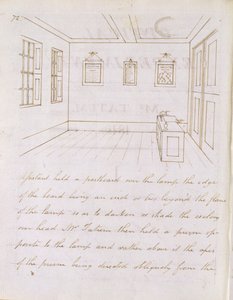 72
assistant held a pasteboard over the lamp the edge
of the board being an inch or two beyond the flame
of the lamp so as to darken or shade the ceiling
over head. Mr Tatum then held a prism op-
posite to the lamp and rather above it the apex
of the prism being directed obliquely from the